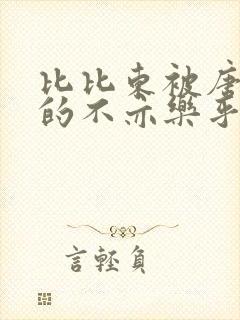 比比东被唐
的不亦樂乎
言輕負